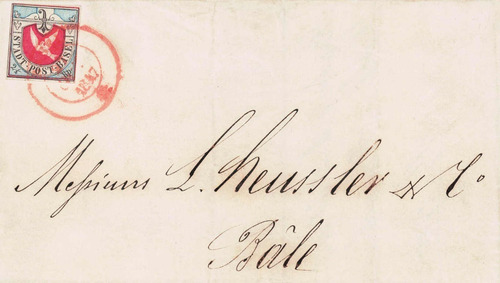 STADT-POST-BASEL
2½ Rp.
1847
Messieurs L. Heussler & Co
Bâle